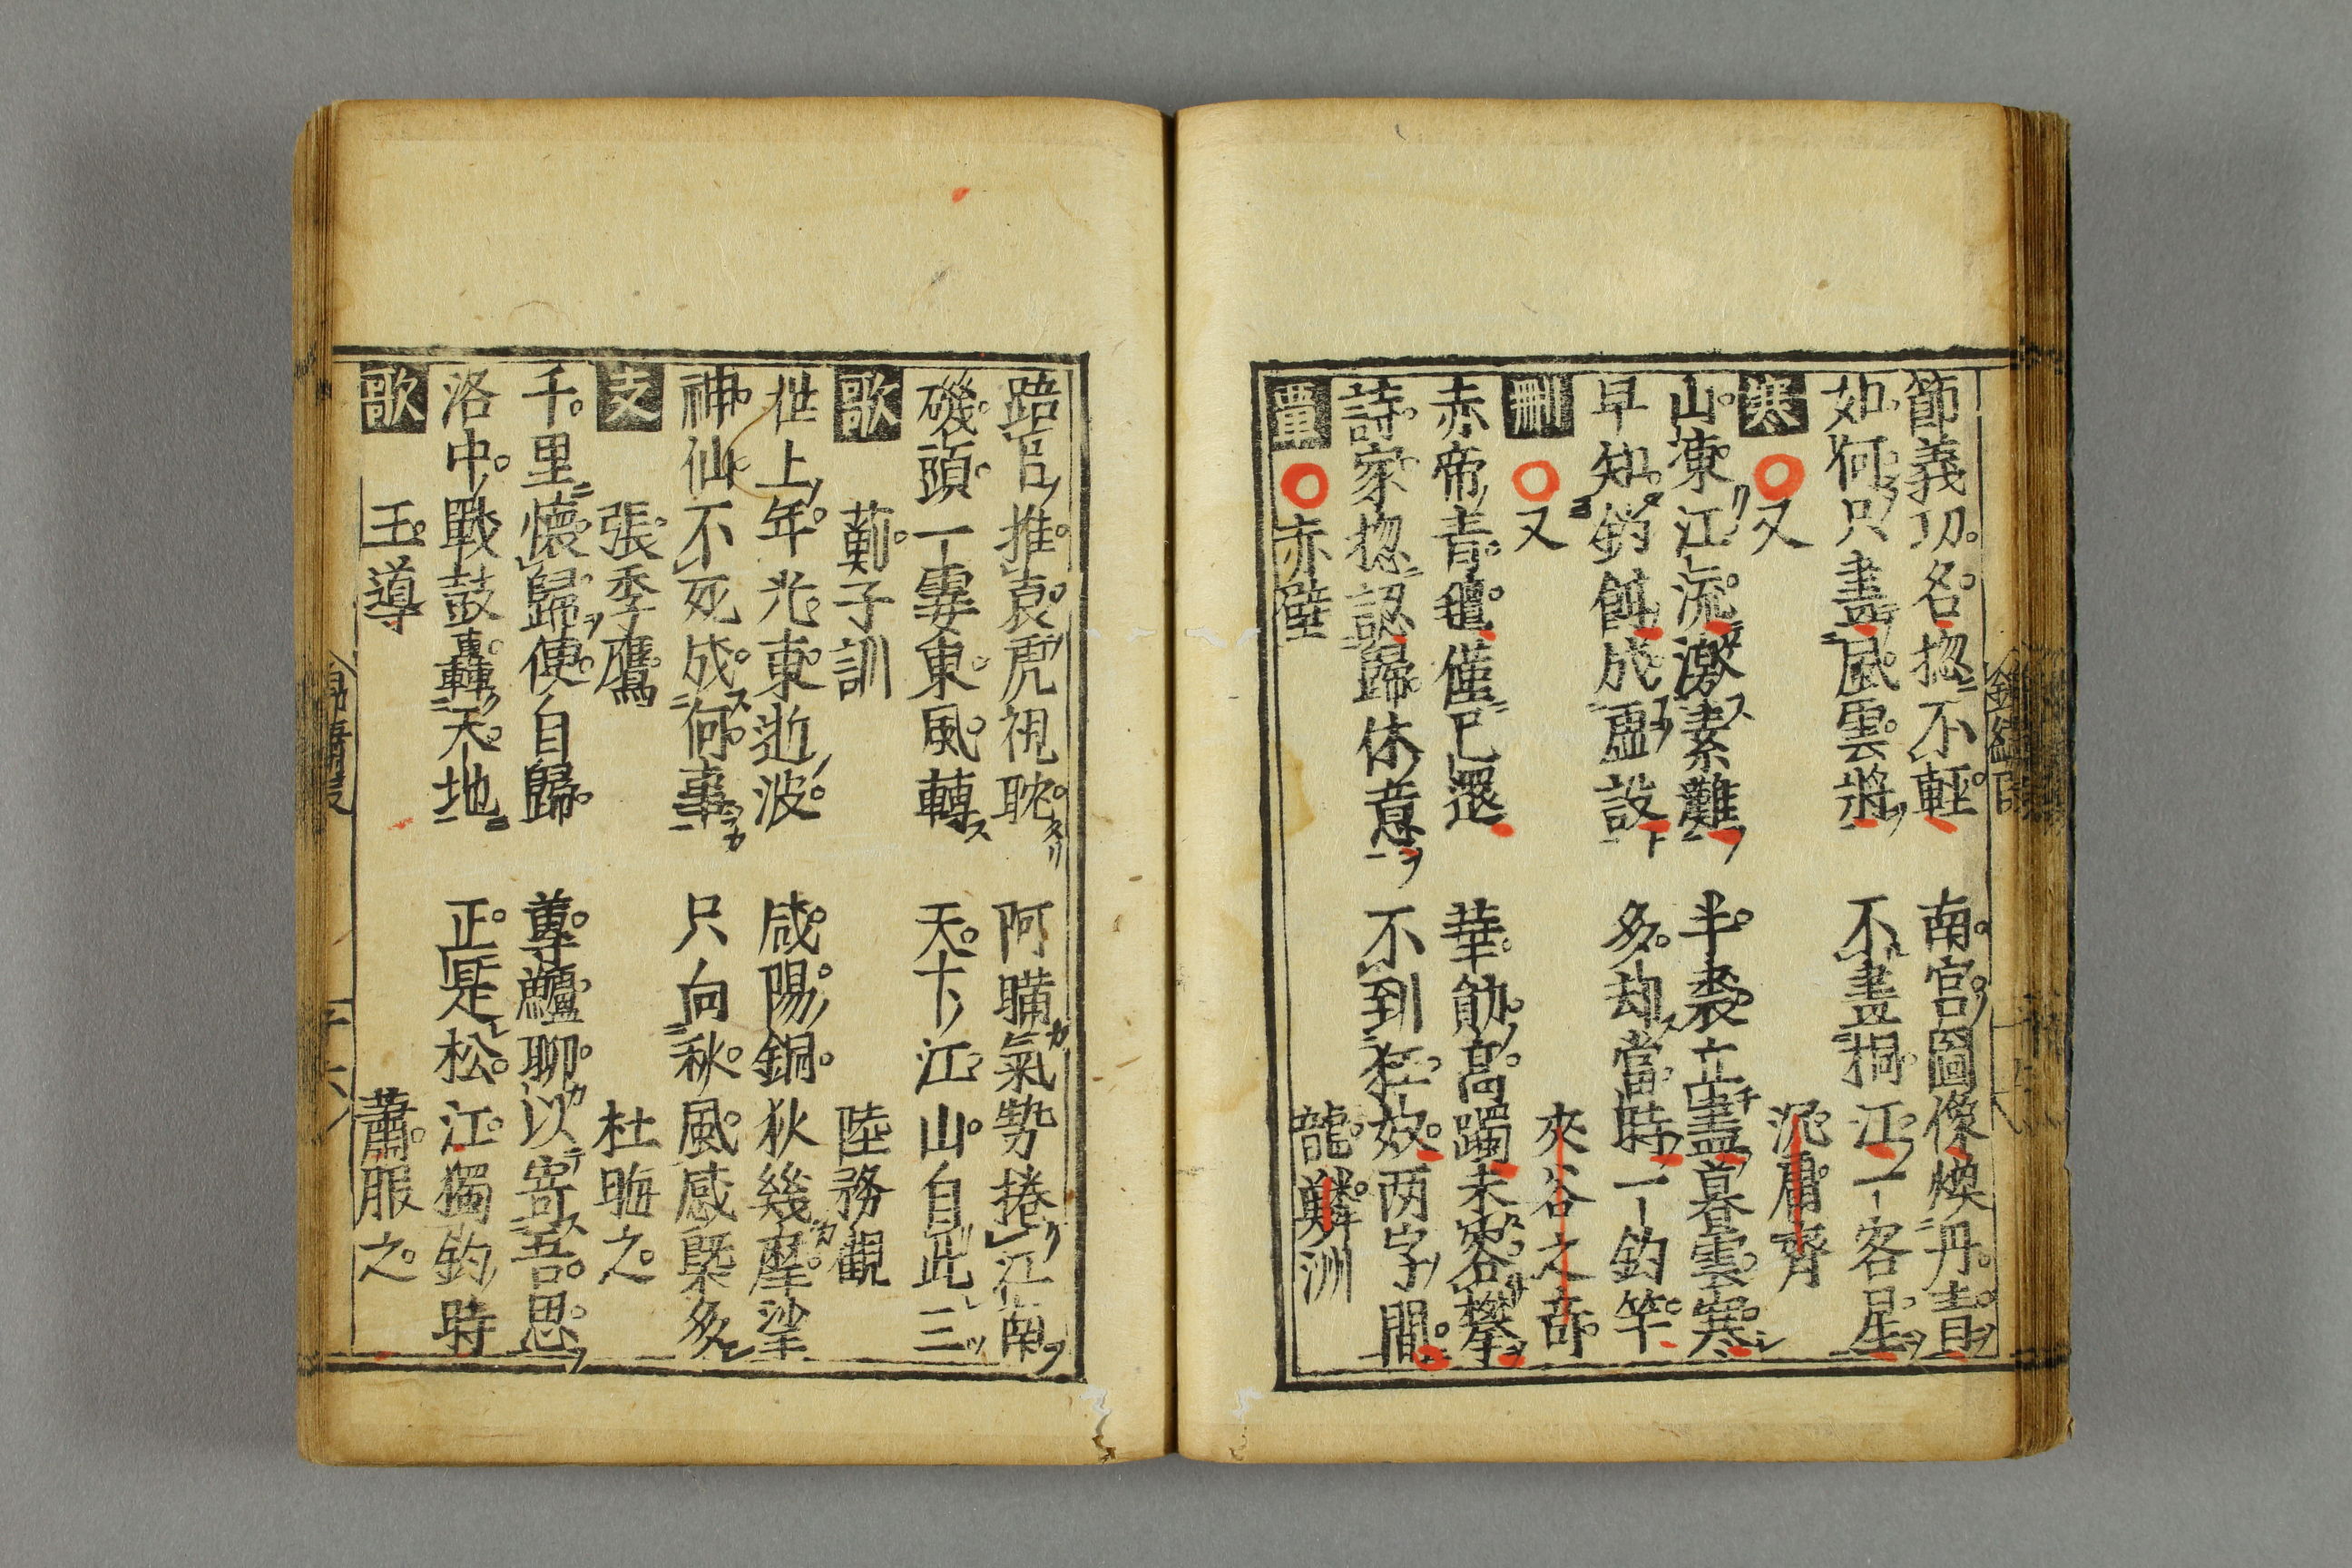 節義功名揔不輕　南宮圖像煥丹青
如何只畫風雲將　不畫桐江一客星
寒　又　泥庸齊
山凍江流激素難　半裘立盡暮雲寒
早知釣餌成虛設　多却當時一釣竿
刪　又　夾谷之奇
赤帝青氊僅已還　華勛高躅未容攀
詩家揔認歸休意　不到狂奴两字間
覃　赤壁　龍麟洲
踣官推袁虎視耽　阿瞞氣勢捲江南
磯頭一霎東風轉　天下江山自此三
歌　薊子訓　陸務觀
世上年光東逝波　咸陽銅狄幾摩挲
神仙不死成何事　只向秋風感慨多
支　張季鷹　杜晦之
千里懷歸便自歸　蓴鱸聊以寄吾思
洛中戰鼓轟天地　正是松江獨釣時
歌　王導　蕭服之